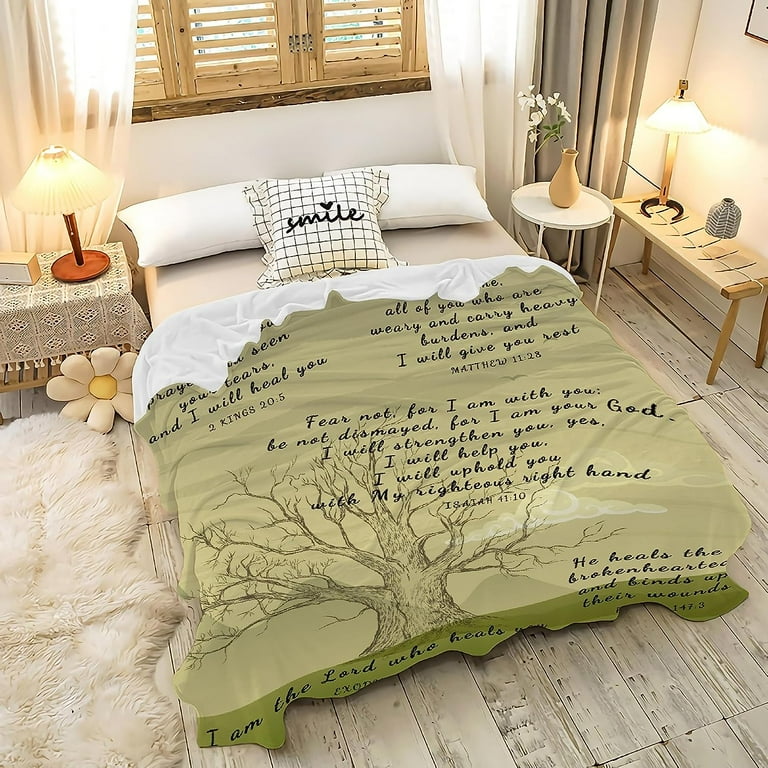 smile
seen
your tears,
and I will heal you
2 KINGS 20:5
all of you who are
weary and carry heavy
burdens, and
I will give you rest
MATTHEW 11:28
Fear not, for I am with you;
be not dismayed, for I am your God.
I will strengthen you, yes,
I will help you,
I will uphold you
with My righteous right hand
ISAIAH 41:10
He heals the
brokenhearted
and binds up
their wounds
147:3
I am the Lord who heals